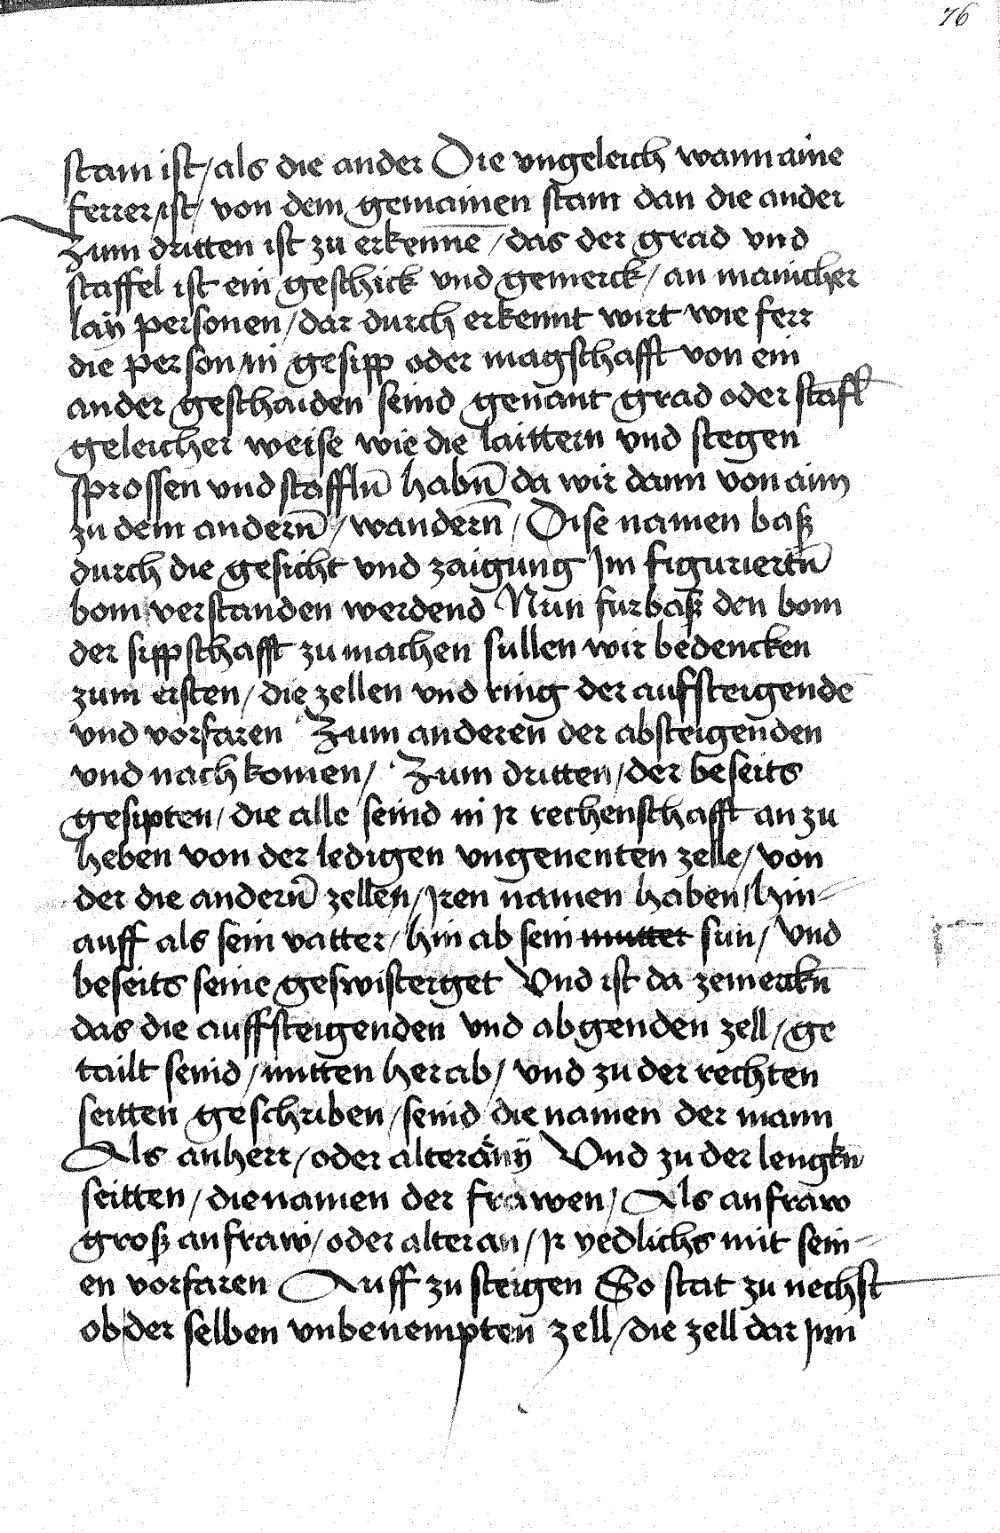 76
stam ist / als die ander Die vngeleich wann aine
ferrer / ist / von dem gemainen stam dan die ander
Zum dritten ist zu erkennē / das der grad vnd
staffel ist ein geschick vnd gemerck / an manicher
laÿ personen / dar durch erkennt wirt wie ferr
die person / in gesipp oder magschafft von ein
ander geschaiden seind genant grad oder staffl
geleicher weise wie die laittern vnd stegen
sprossen vnd stafflñ habñ da wir dann von aim
zu dem anderñ / wanderñ / Dise namen baß
durch die gesicht vnd zaigung Im figuriertñ
bom verstanden werdend Nun furbaß den bom
der sippschafft zu machen sullen wir bedencken
zum ersten / die zellen vnd ring der aufsteigendē
vnd vorfaren Zum anderen der absteigenden
vnd nachkomen / Zum dritten / der beseits
gesipten / die alle seind in Ir rechenschafft an zu
heben von der ledigen vngenenten zelle / von
der die anderñ zellen / Iren namen haben / hin=
auff als sein vatter / hin ab sein mutter sun / Vnd
beseits seine geswisterget Vnd ist da zemerckñ
das die auffsteigenden vnd abgenden zell / ge
tailt seind / mitten herab / vnd zu der rechten
seitten geschriben / seind die namen der mann
Als anherr / oder alteränÿ Vnd zu der lengkñ
seitten / die namen der frawen / Als anfraw
groß anfraw / oder alteran / Ir yedlichs mit sein=
en vorfaren Auff zu steigen So stat zu nechst
ob der selben vnbenempten zell / die zell dar Inn